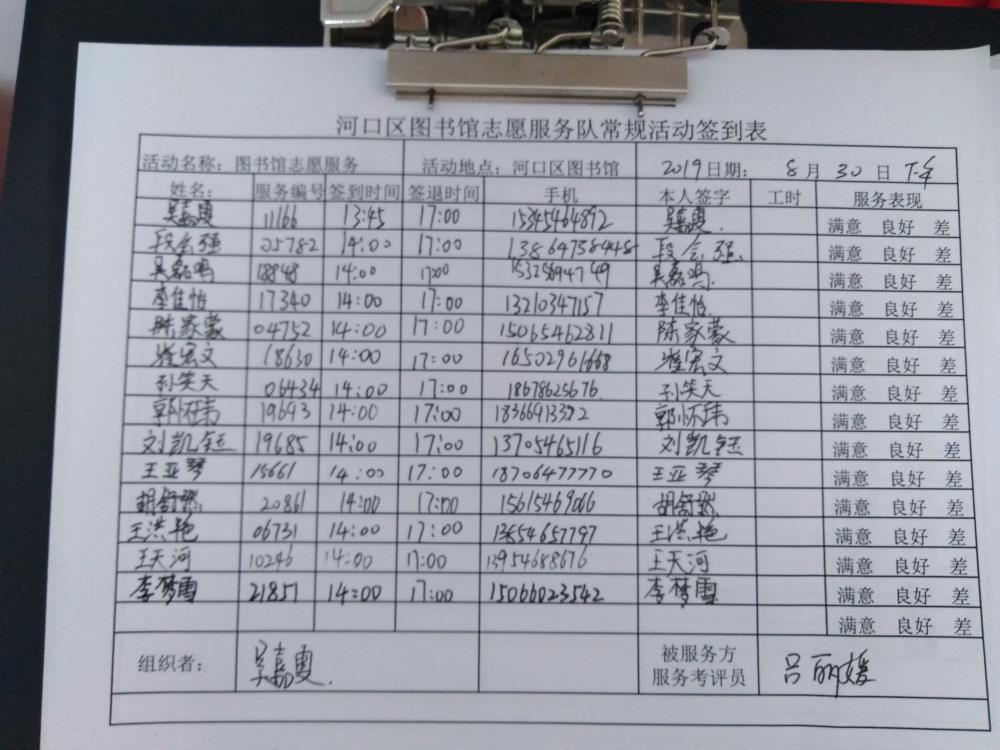 河口区图书馆志愿服务队常规活动签到表
活动名称：图书馆志愿服务 活动地点：河口区图书馆 2019日期： 8月30日下午
姓名： 服务编号 签到时间 签退时间 手机 本人签字 工时 服务表现
11166 13:45 17:00 15345464892 满意 良好 差
段会强 05782 14:00 17:00 13864738448 段会强 满意 良好 差
吴磊鸣 18848 14:00 17:00 吴磊鸣 满意 良好 差
李佳怡 17340 14:00 17:00 13210347157 李佳怡 满意 良好 差
陈家蒙 04752 14:00 17:00 15065462811 陈家蒙 满意 良好 差
崔宏文 18630 14:00 17:00 16502961668 崔宏文 满意 良好 差
孙笑天 06434 14:00 17:00 18678625676 孙笑天 满意 良好 差
郭怀玮 19693 14:00 17:00 郭怀玮 满意 良好 差
刘凯钰 19685 14:00 17:00 13705465116 刘凯钰 满意 良好 差
王亚琴 15661 14:00 17:00 18706477770 王亚琴 满意 良好 差
胡舒然 20861 14:00 17:00 15615469066 胡舒然 满意 良好 差
王洪艳 06731 14:00 17:00 13654657797 王洪艳 满意 良好 差
王天河 10246 14:00 17:00 13954688676 王天河 满意 良好 差
李梦雪 21857 14:00 17:00 15066023542 李梦雪 满意 良好 差
满意 良好 差
组织者： 被服务方 吕丽媛
服务考评员